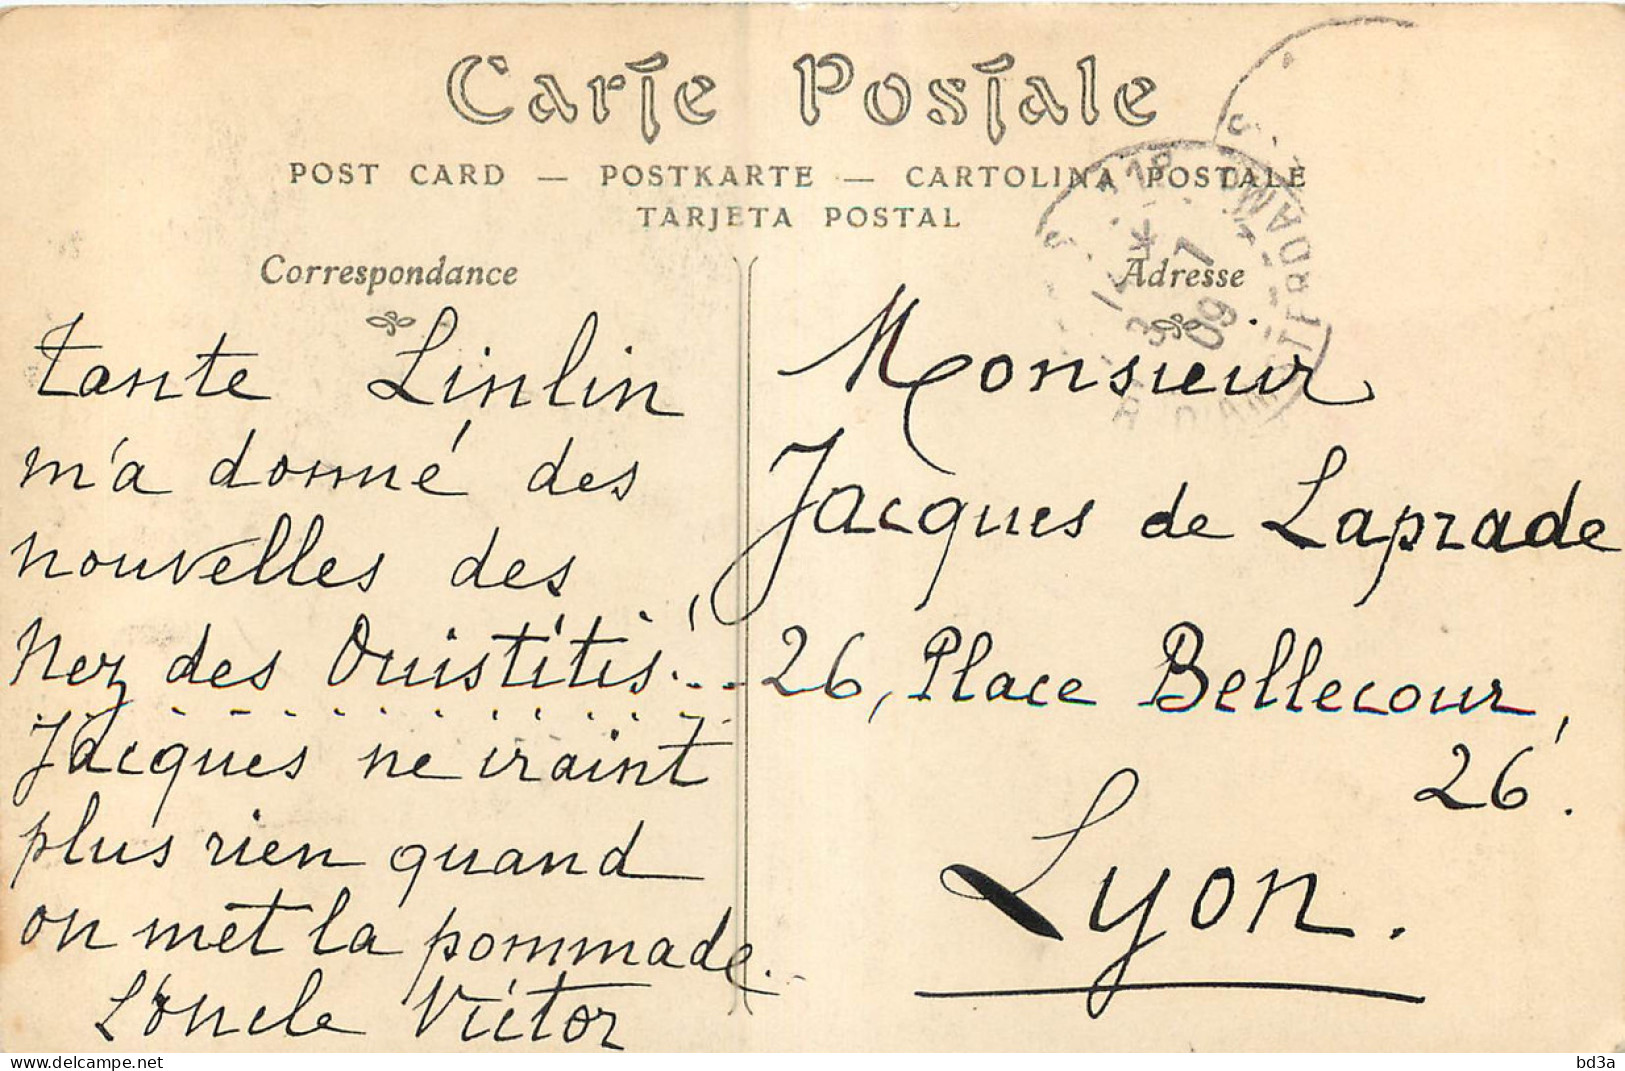 Carte Postale
POST CARD — POSTKARTE — CARTOLINA POSTALE
TARJETA POSTAL
Correspondance
Tante Linlin
m'a donné des
nouvelles des
Nez des Ouistitis!...
Jacques ne
plus rien quand
on met la pommade.
L'oncle Victor
Adresse
Monsieur
Jacques de Laprade
26, Place Bellecour,
26.
Lyon.
3 7
09
delcampe.net
bd3a